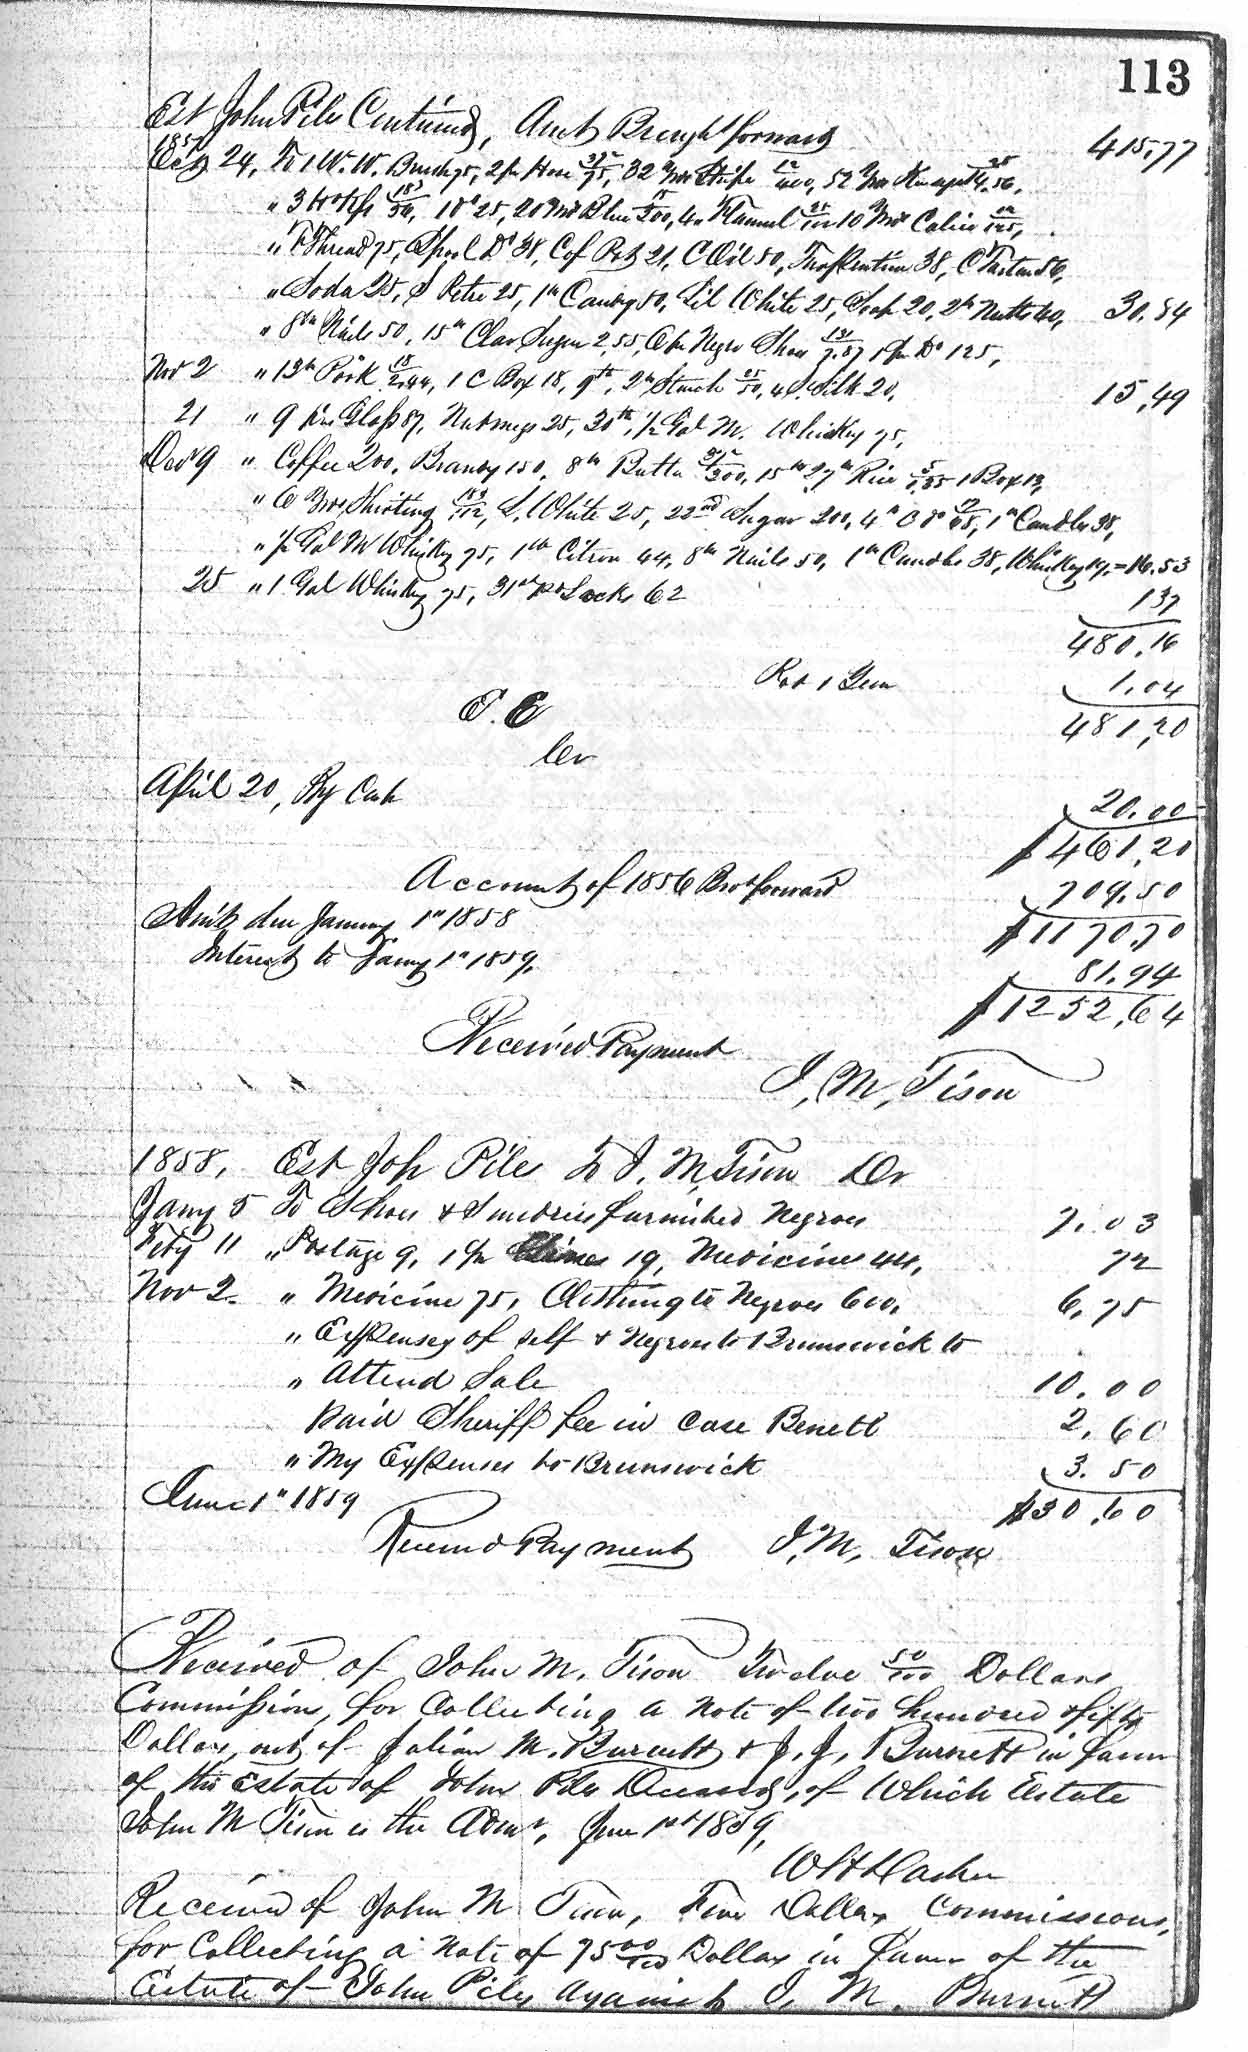 113
Est John Piles Continued, Amt Brought forward 415.77
1857
Oct 24, To 1 W. W. Brush 75, 2 pr Hose 37½/75, 32 yds Stripe 12/400, 52 yds
" 3 18 3/ 50, 18 25, 20 yds Blue 300, 4 " Flannel 25/100 10 yds Calico 125,
" F Thread 75, Spool Do 38, 21, C Oil 50, Turpentine 38, C Tartar 56,
" Soda 25, S Petre 25, 1 lb Candy 50, Lil White 25, Soap 20, 2 lb Nutts 40, 30.84
" 8 lb Nails 50, 15 lb Clar Sugar 2.55, 6 pr Negro Shoes 7.87 1 pr Do 125,
Nov 2 " 13 lb Pork 18/2.44, 1 C Box 18, 9th, 2 lb Starch 25/50, 4 S. Silk 20, 15.49
21 " 9 pin Glass 87, Nutmegs 25, 30th, ½ Gal M. Whiskey 75,
Decr 9 " Coffee 200, Brandy 150, 8 lb Butter 37½/300, 15th 27 lb Rice 5/1.35 1 Box 13,
" 6 yds Shirting 112, L. White 25, 22nd Sugar 200, 4 " 1 lb Candles 38,
" ½ Gal M Whiskey 75, 1 lb Citron 44, 8 lb Nails 50, 1 lb Candles 38, Whiskey 19, = 16.53
25 " 1 Gal Whiskey 75, 31st pr Socks 62 137
480.16
1.04
E. E 481.20
Cr
April 20, By Cash 20.00
$461.20
Account of 1856 Brot forward 709.50
Amt due January 1st 1858 $1170.70
Interest to Jany 1st 1859, 81.94
$1252.64
Received Payment
J, M, Tison
1858, Est Joh Piles To J. M, Tison Dr
Jany 5 To Shoes & Sundries furnished Negroes 7.03
Feby 11 " Postage 9, 1 pr 19, Medicines 44, 72
Nov 2 " Medicine 75, Clothing to Negroes 600, 6.75
" Expenses of self & Negroes to Brunswick to
" Attend Sale 10.00
Paid Sheriff fee in case Benett 2.60
" My Expenses to Brunswick 3.50
June 1st 1859 $30.60
Received Payment J, M, Tison
Received of John M. Tison Twelve 50/100 Dollars
Commissions, for Collecting a Note of two hundred & fifty
Dollars, out of M. Burnett & J. J. Burnett in favor
of the Estate of John Piles Deceased, of Which Estate
John M Tison is the Admr, June 1st 1859,
Received of John M Tison, Five Dollars Commissions,
for Collecting a Note of 75 00/100 Dollars in favor of the
Estate of John Piles against J. M. Burnett